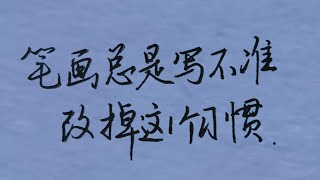 笔画总是写不准
改掉这个习惯.